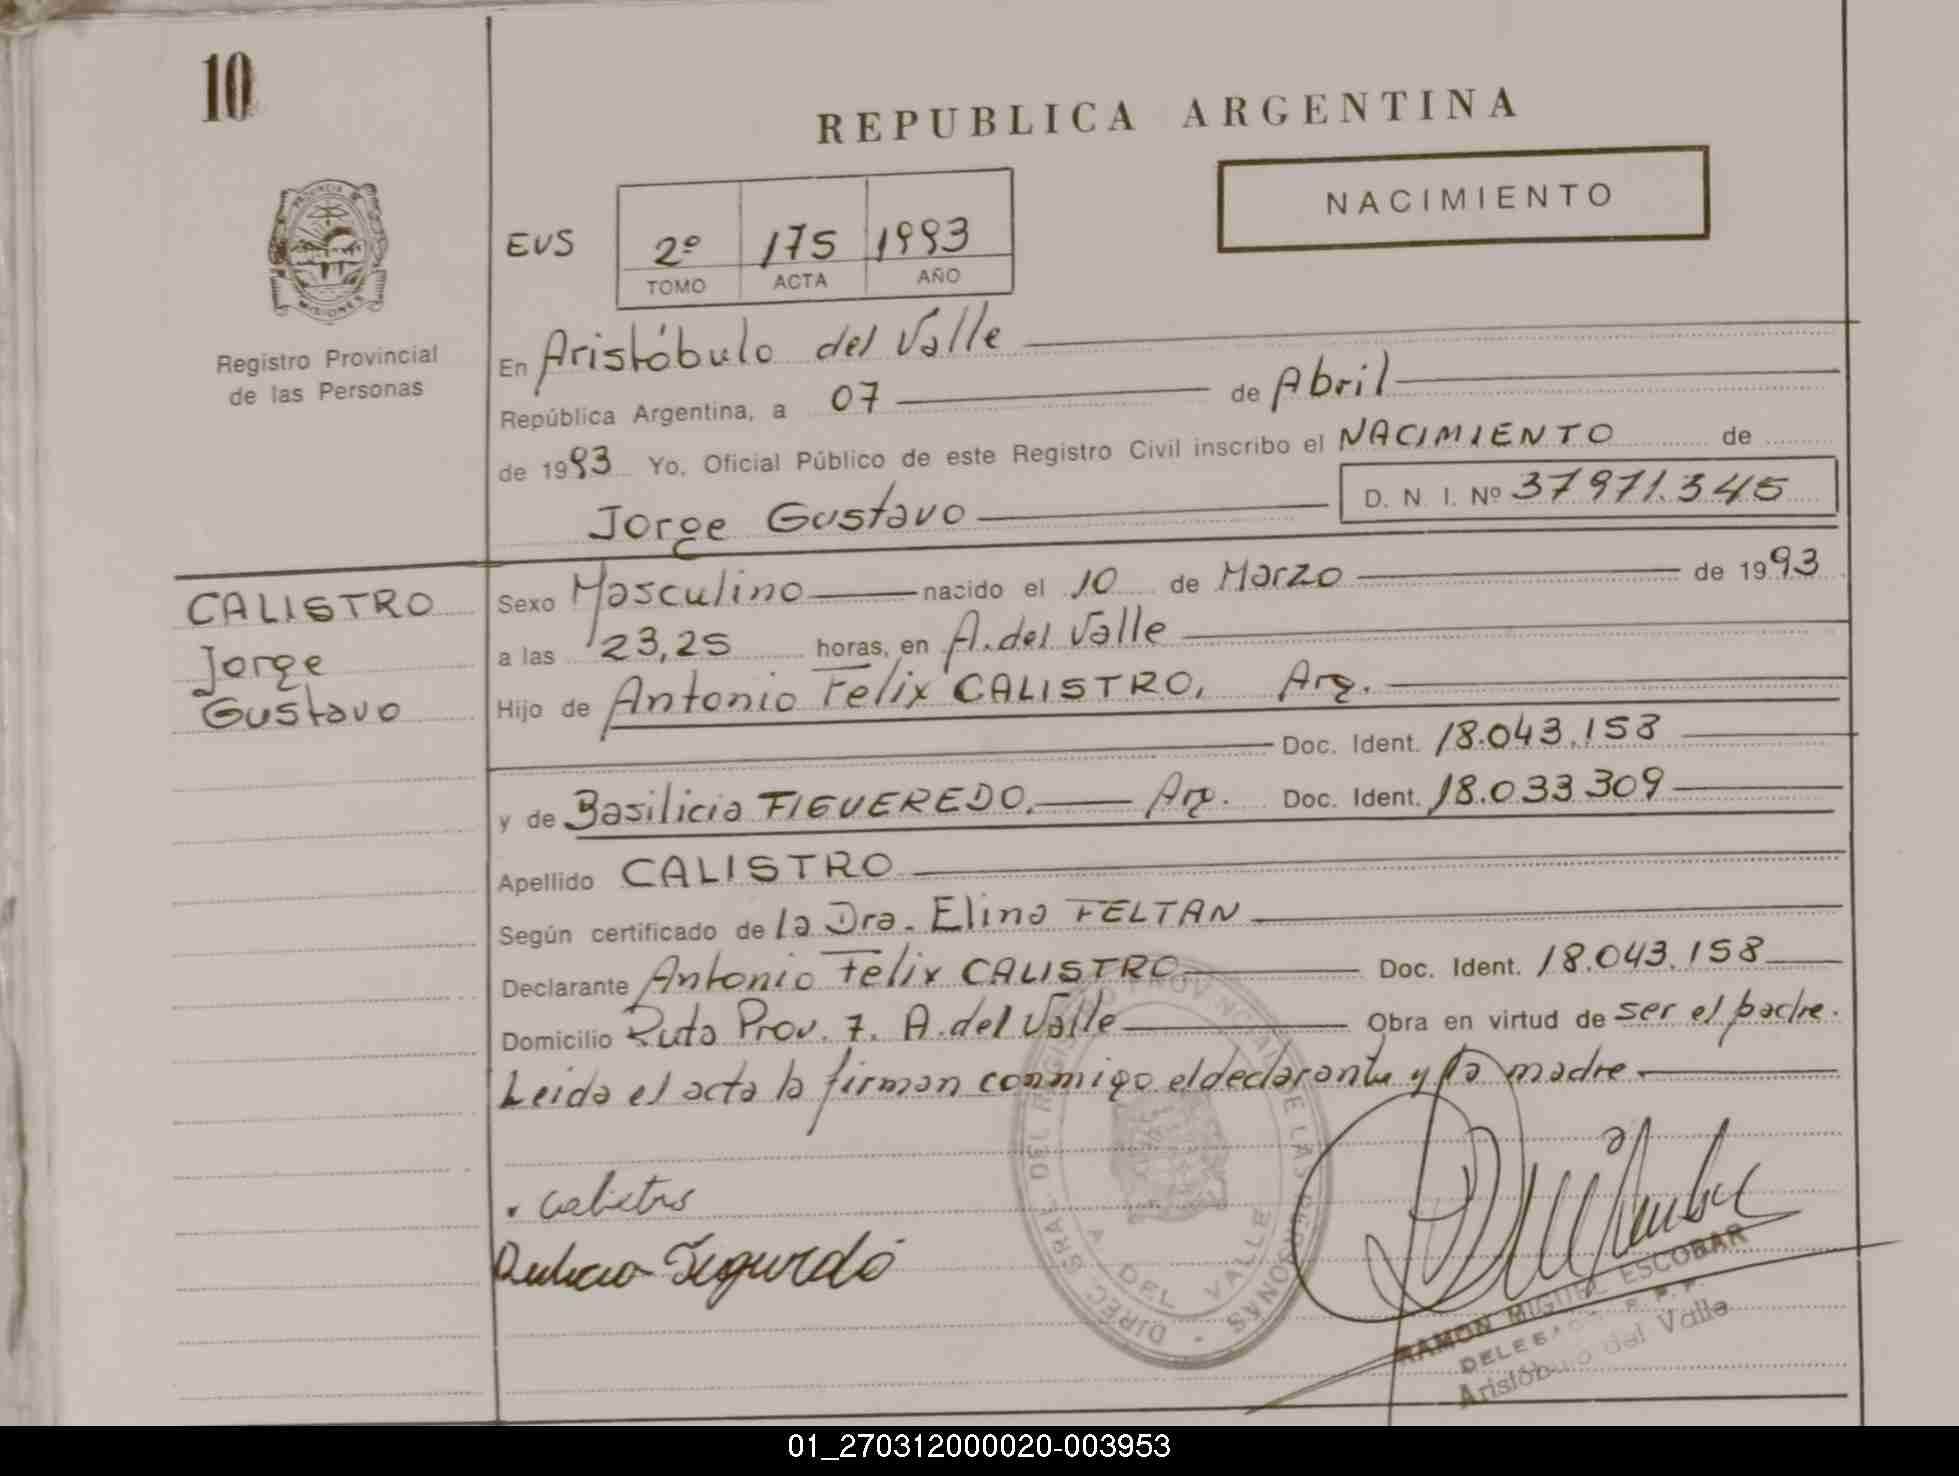 10
REPUBLICA ARGENTINA
NACIMIENTO
PROVINCIA DE
MISIONES
EVS
2º 175 1993
TOMO ACTA AÑO
Registro Provincial
de las Personas
En Aristóbulo del Valle
República Argentina, a 07 de Abril
de 1993 Yo, Oficial Público de este Registro Civil inscribo el NACIMIENTO de
Jorge Gustavo D. N. I. Nº 37971.345
CALISTRO
Jorge
Gustavo
Sexo Masculino nacido el 10 de Marzo de 1993
a las 23,25 horas, en A. del Valle
Hijo de Antonio Felix CALISTRO, Arg.
Doc. Ident. 18.043.158
y de Basilicia FIGUEREDO. Arg. Doc. Ident. 18.033309
Apellido CALISTRO
Según certificado de la Dra. Elina FELTAN
Declarante Antonio Felix CALISTRO Doc. Ident. 18.043.158
Domicilio Ruta Prov. 7. A. del Valle Obra en virtud de ser el padre.
Leida el acta la firman conmigo el declarante y la madre
DIREC. GRAL. DEL REGISTRO PROVINCIAL DE LAS PERSONAS
A. DEL VALLE
RAMON MIGUEL ESCOBAR
Aristóbulo del Valle
01_270312000020-003953